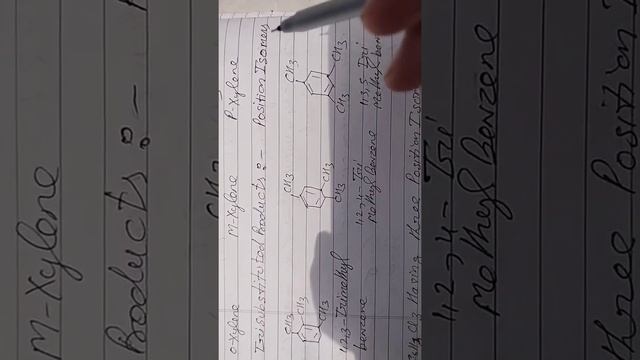 o-Xylene M-Xylene P-Xylene
Trisubstituted Products:- Position Isomers
CH3 CH3 CH3
CH3 CH3 CH3
CH3 CH3 CH3
1,2,3-Trimethyl 1,2,4-Tri 1,3,5 Tri
benzene Methyl benzene Methyl ben
Having three Position Isom
M-Xylene
Products:-
1,2,4-Tri
Methyl benzene
three Position